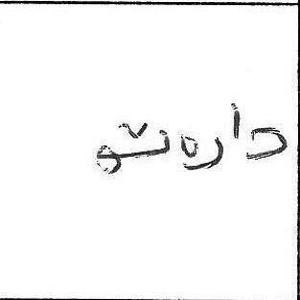 دارەتو